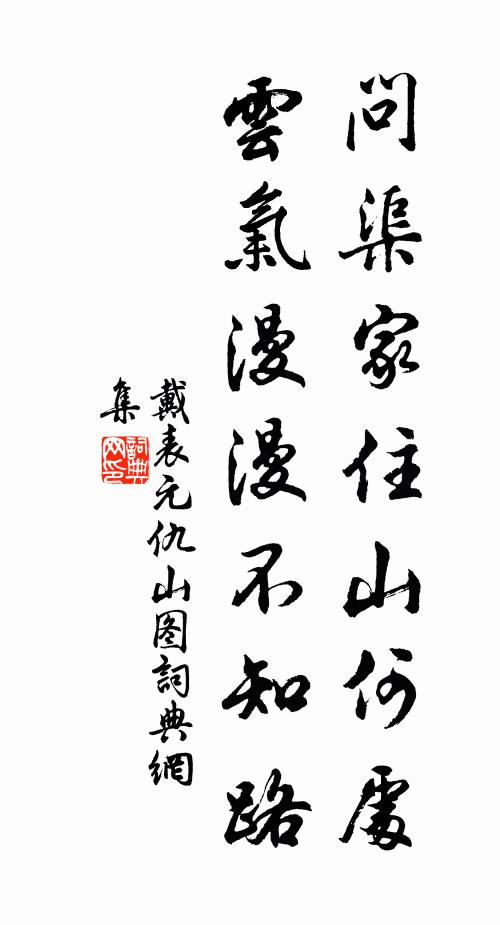 問渠家住山何處
雲氣漫漫不知路
戴表元仇山图詞典網
集
詞典
网印